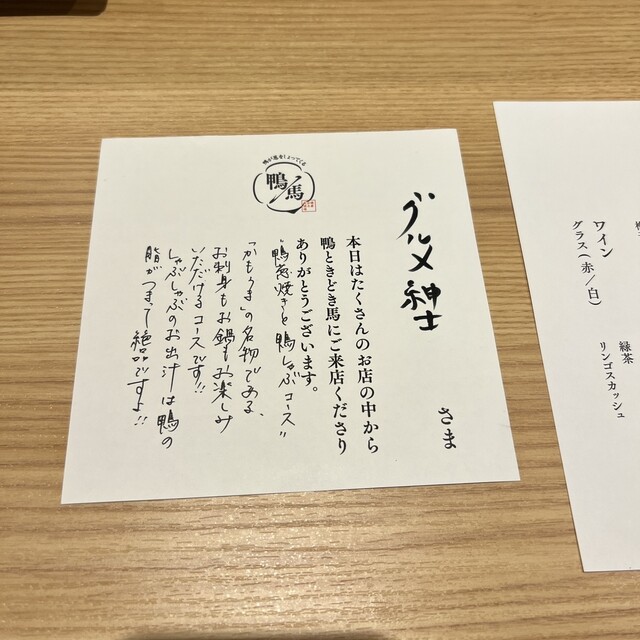 グルメ紳士
さま
本日はたくさんのお店の中から
鴨ときどき馬にご来店くださり
ありがとうございます。
"鴨葱焼きと鴨しゃぶコース"
「かもうま」の名物である、
お刺身もお鍋もお楽しみ
いただけるコースです!!
しゃぶしゃぶのお出汁は鴨の
脂がつまって絶品ですよ!!
鴨が葱をしょってくる
鴨/馬
ワイン
グラス(赤/白)
緑茶
リンゴスカッシュ